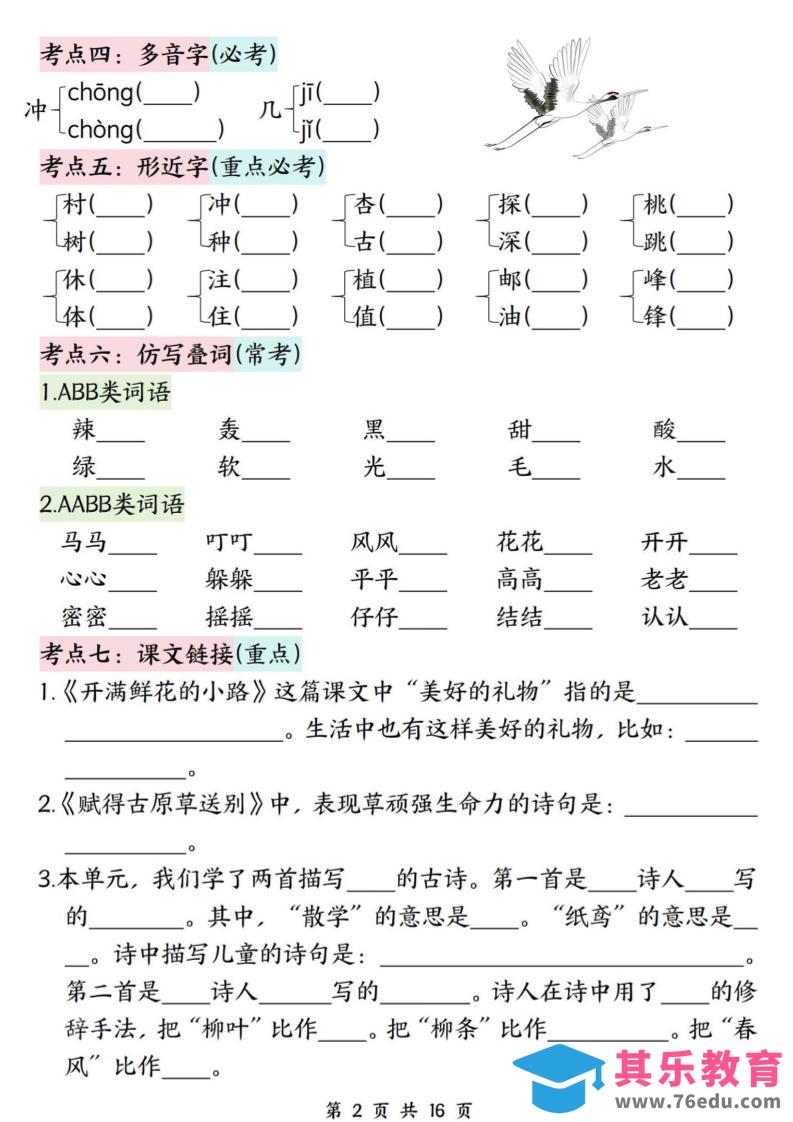 考点四：多音字(必考)
冲 chōng(____) chòng(______) 几 jī(____) jǐ(____)
考点五：形近字(重点必考)
村(____) 冲(____) 杏(____) 探(____) 桃(____)
树(____) 种(____) 古(____) 深(____) 跳(____)
休(____) 注(____) 植(____) 邮(____) 峰(____)
体(____) 住(____) 值(____) 油(____) 锋(____)
考点六：仿写叠词(常考)
1.ABB类词语
辣____ 轰____ 黑____ 甜____ 酸____
绿____ 软____ 光____ 毛____ 水____
2.AABB类词语
马马____ 叮叮____ 风风____ 花花____ 开开____
心心____ 躲躲____ 平平____ 高高____ 老老____
密密____ 摇摇____ 仔仔____ 结结____ 认认____
考点七：课文链接(重点)
1.《开满鲜花的小路》这篇课文中“美好的礼物”指的是__________
__________________。生活中也有这样美好的礼物，比如：______
__________。
2.《赋得古原草送别》中，表现草顽强生命力的诗句是：___________
__________。
3.本单元，我们学了两首描写____的古诗。第一首是____诗人____写
的________。其中，“散学”的意思是____。“纸鸢”的意思是__
__。诗中描写儿童的诗句是：______________________________。
第二首是____诗人______写的________。诗人在诗中用了____的修
辞手法，把“柳叶”比作____。把“柳条”比作__________。把“春
风”比作____。
第 2 页 共 16 页
其乐教育
www.76edu.com